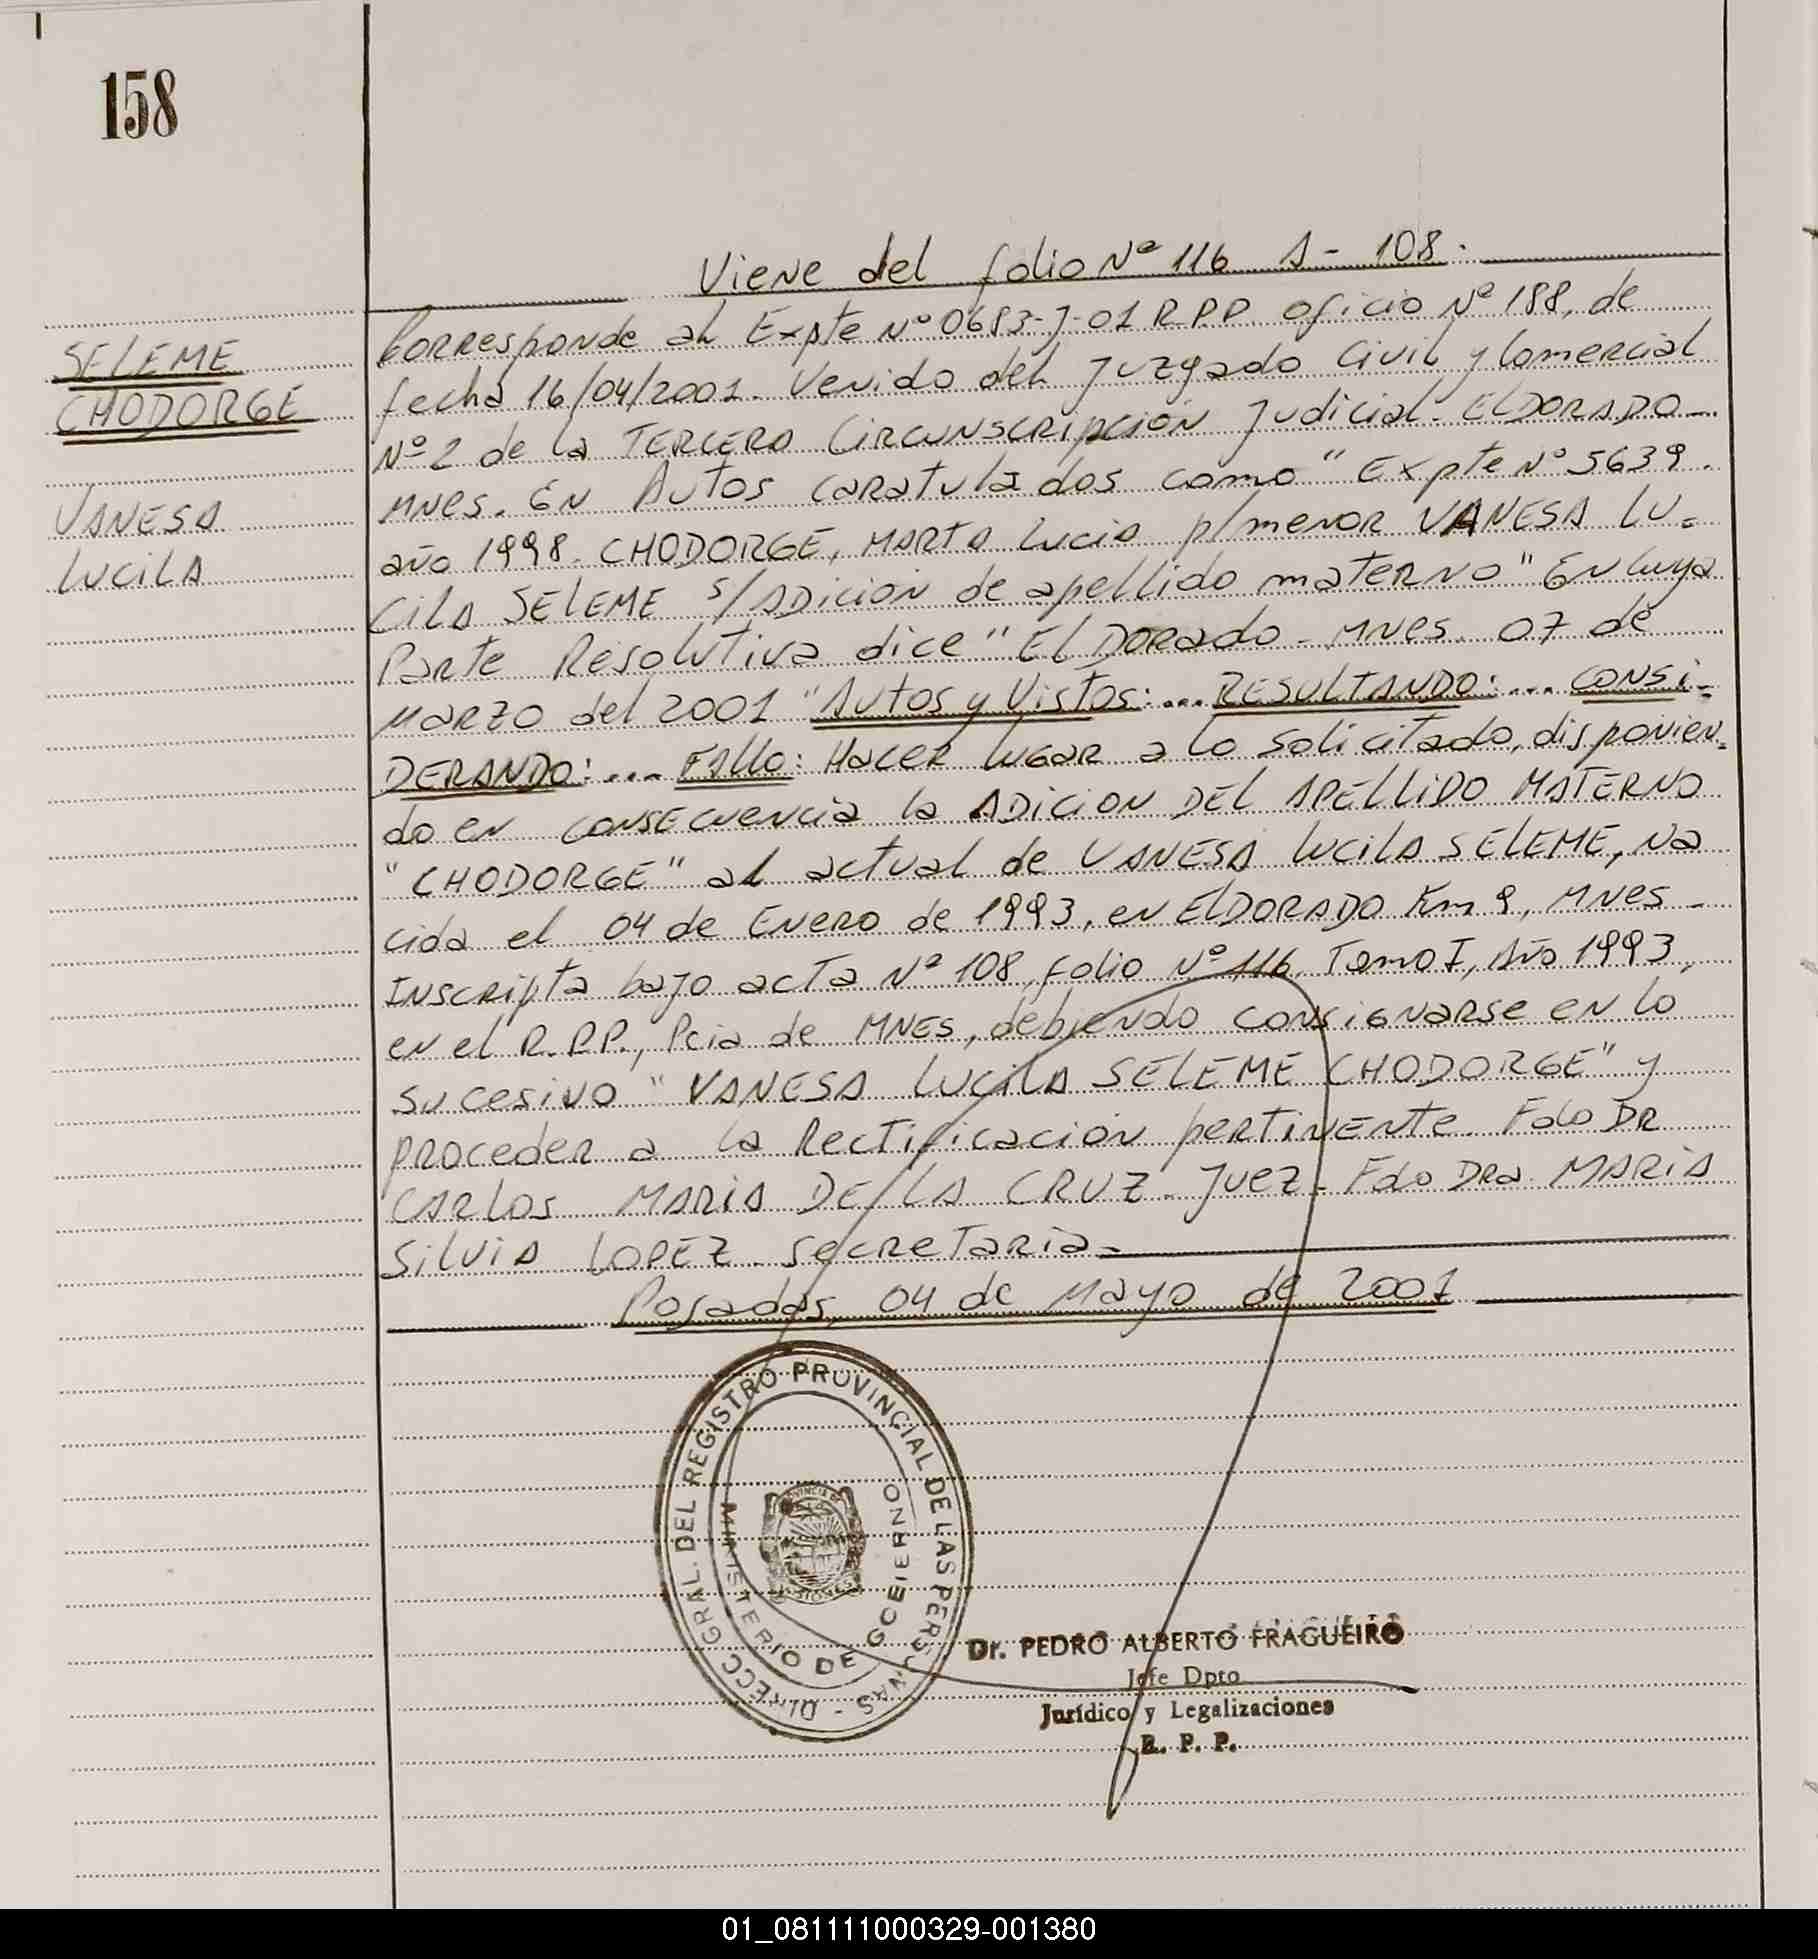 158
Viene del folio Nº 116 A - 108.
SELEME
CHODORGE
VANESA
LUCILA
Corresponde al Expte Nº 0683-J-01 R.P.P. oficio Nº 188, de
fecha 16/04/2001. Venido del Juzgado Civil y Comercial
Nº 2 de la TERCERA CIRCUNSCRIPCIÓN Judicial. ELDORADO -
MNES. EN AUTOS CARATULADOS como "Expte Nº 5639.
año 1998. CHODORGE, MARTA LUCIA p/menor VANESA LU=
CILA SELEME S/ADICIÓN de apellido materno" En cuya
Parte Resolutiva dice "ElDorado - MNES. 07 de
MARZO del 2001 "AUTOS y VISTOS: ... RESULTANDO: ... CONSI=
DERANDO: ... FALLO: HACER LUGAR a lo solicitado, disponien=
do en CONSECUENCIA la ADICION DEL APELLIDO MATERNO
"CHODORGE" al actual de VANESA LUCILA SELEME, NA
cida el 04 de ENERO de 1993, en ELDORADO Km 9, MNES -
INSCRIPTA bajo acta Nº 108, folio Nº 116, TOMO I, Año 1993,
en el R.P.P., Pcia de MNES, debiendo CONSIGNARSE EN LO
SUCESIVO "VANESA LUCILA SELEME CHODORGE" y
PROCEDER a la Rectificación pertinente. Fdo DR
CARLOS MARIA DE LA CRUZ - Juez - Fdo Dra. MARIA
SILVIA LOPEZ - Secretaria -
Posadas, 04 de Mayo de 2001
DIRECC. GRAL. DEL REGISTRO PROVINCIAL DE LAS PERSONAS -
MINISTERIO DE GOBIERNO
PROVINCIA DE
MISIONES
Dr. PEDRO ALBERTO FRAGUEIRO
Jefe Dpto
Jurídico y Legalizaciones
R. P. P.
01_081111000329-001380